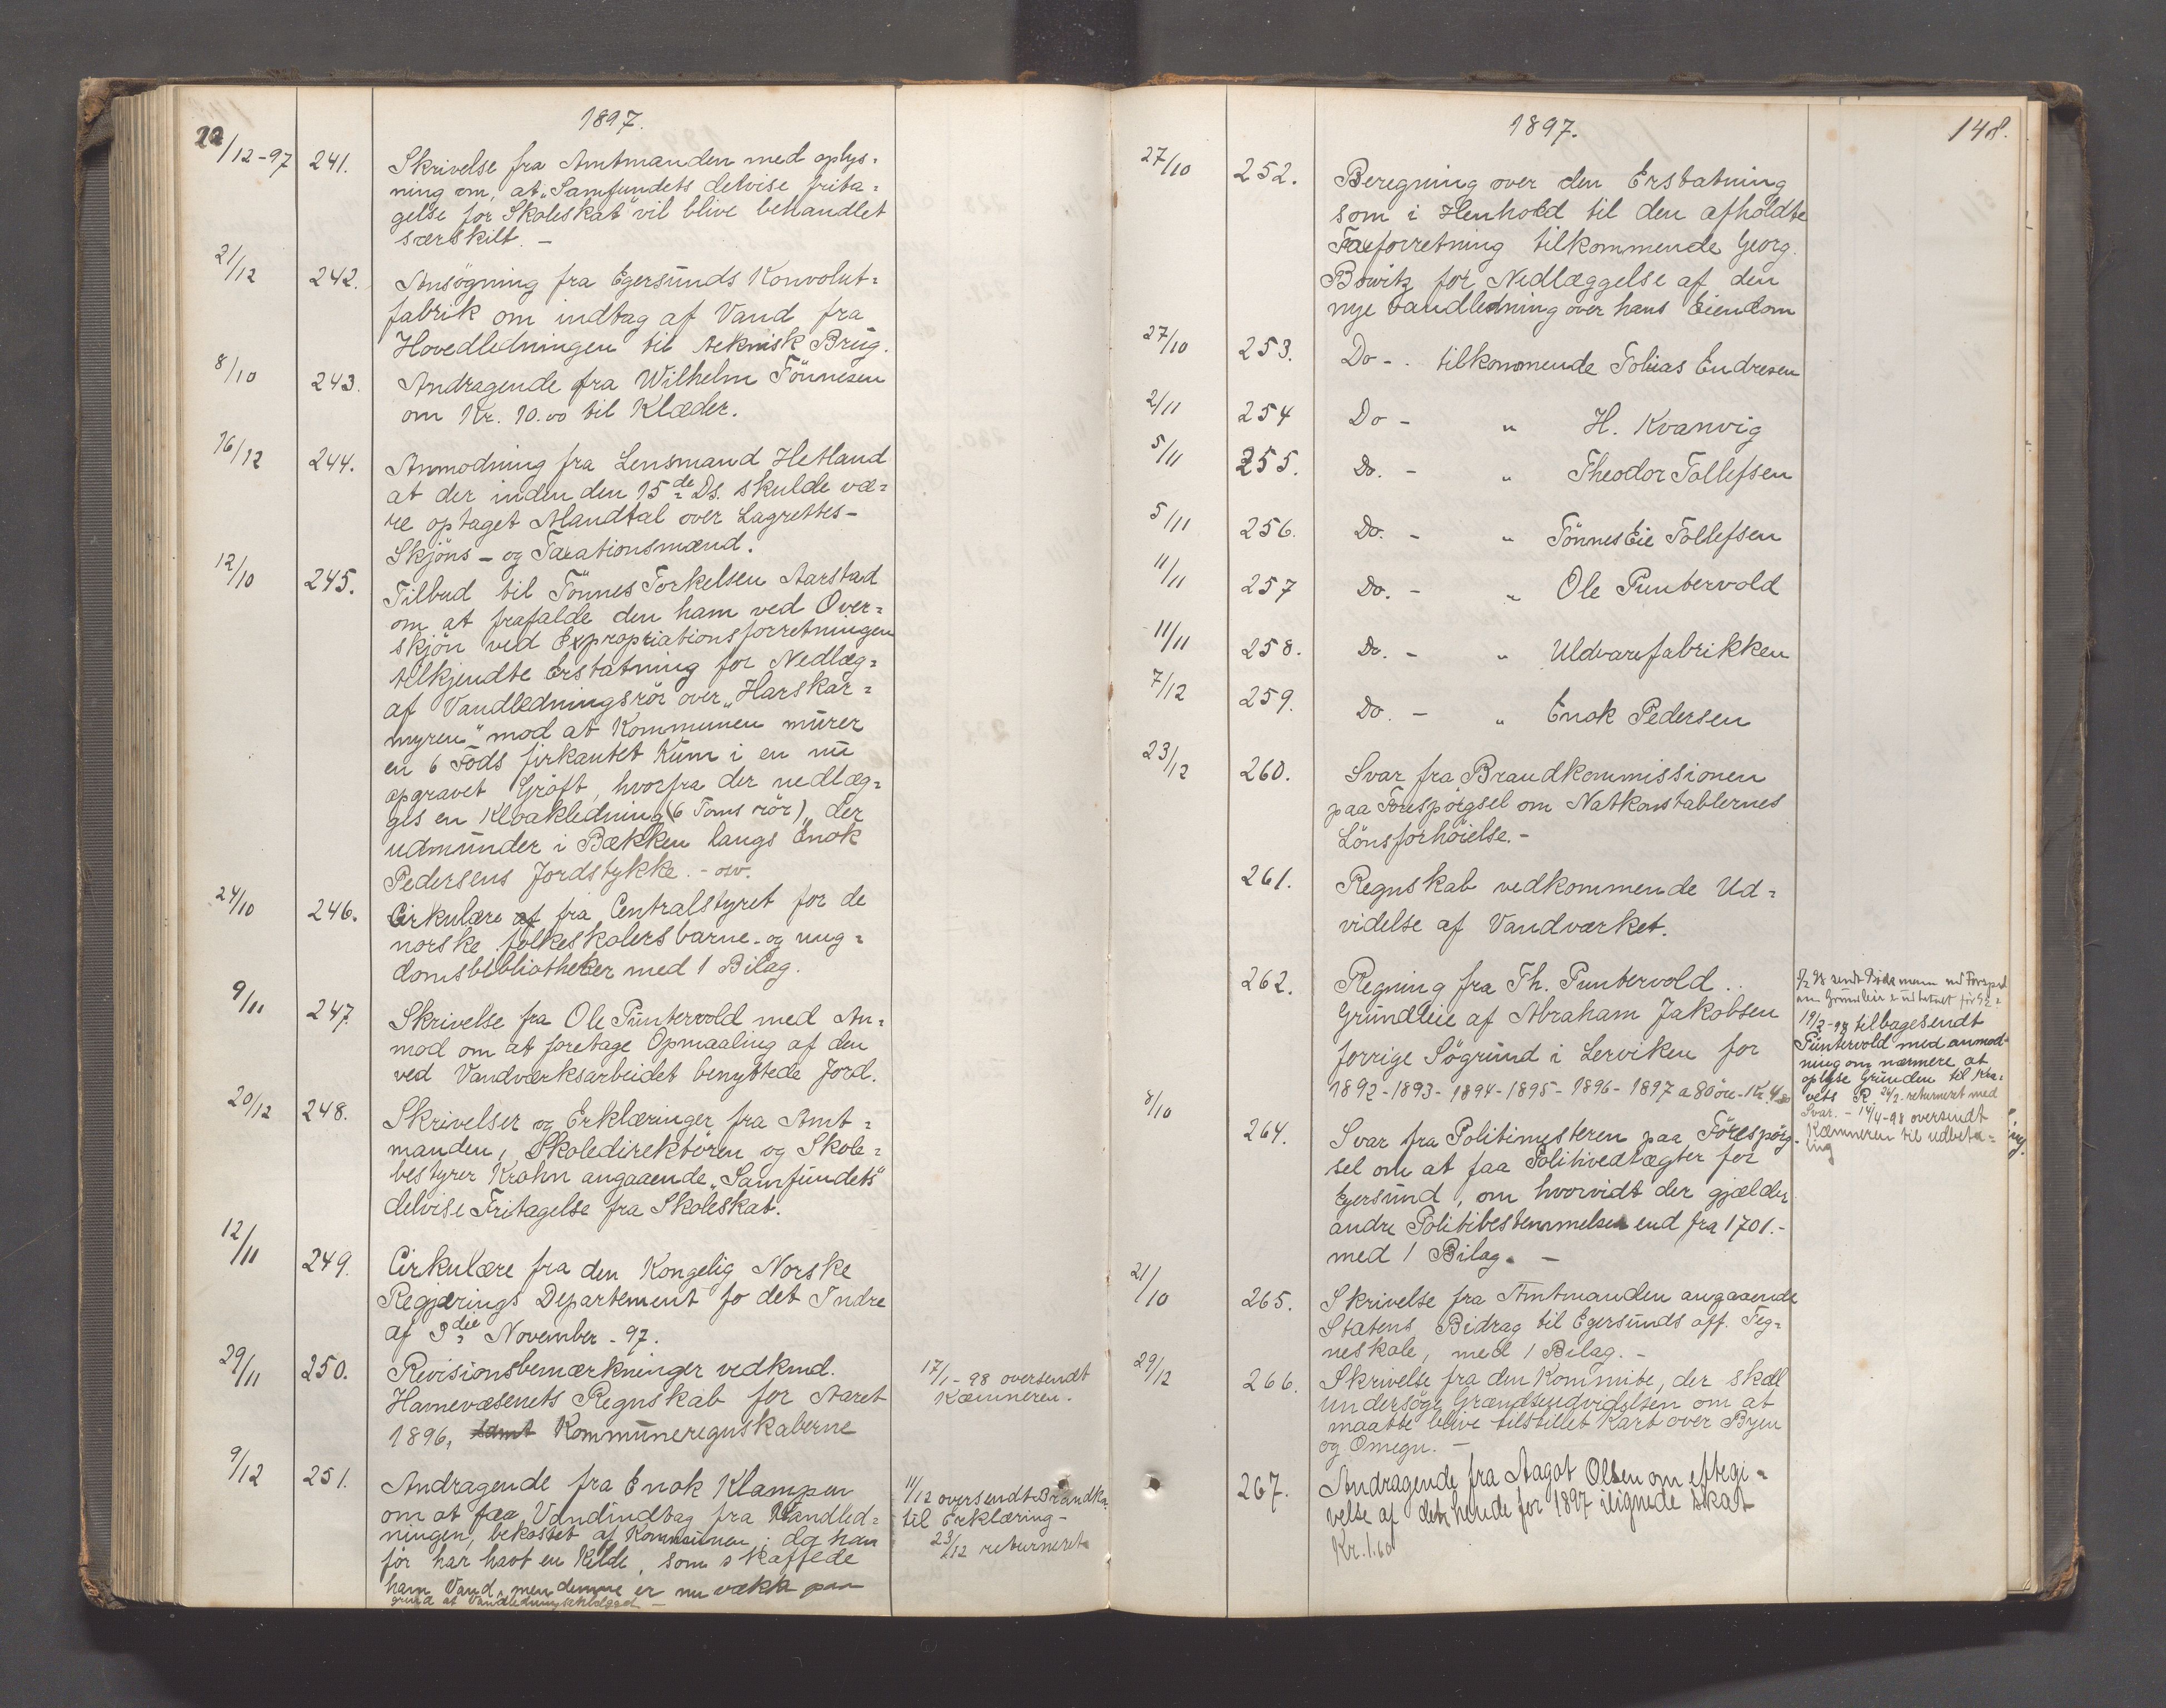 1897.
22/12-97 241. Skrivelse fra Amtmanden med oplys=
ning om, at "Samfundets delvise frita=
gelse for Skoleskat" vil blive behandlet
særskilt. -
21/12 242. Ansögning fra Egersunds Konvolut=
fabrik om indtag af Vand fra
Hovedledningen til teknisk Brug.
8/10 243. Andragende fra Wilhelm Tönnesen
om Kr. 10.00 til Klæder.
16/12 244. Anmodning fra Lensmand Hetland
at der inden den 15de Ds. skulde væ=
re optaget Mandtal over Lagrettes-
Skjöns- og Taxationsmænd.
12/10 245. Tilbud til Tönnes Torkelsen Aarstad
om at frafalde den ham ved Over=
skjön ved Expropriationsforretningen
tilkjendte Erstatning for Nedlæg=
af Vandledningsrör over "Harskar=
myren" mod at Kommunen murer
en 6 Fods firkantet Kum i en nu
opgravet Gröft, hvorfra der nedlæg=
ges en Kloakledning (6 Toms rör), der
udmunder i Bækken langs Enok
Pedersens Jordstykke. - osv.
24/10 246. Cirkulære af fra Centralstyret for de
norske folkeskolers barne- og ung=
domsbibliotheker med 1 Bilag.
9/11 247. Skrivelse fra Ole Puntervold med An=
mod om at foretage Opmaaling af den
ved Vandværksarbeidet benyttede Jord.
20/12 248. Skrivelser og Erklæringer fra Amt=
manden, Skoledirektören og Skole=
bestyrer Krohn angaaende "Samfundets"
delvise Fritagelse fra Skoleskat.
12/11 249. Cirkulære fra den Kongelig Norske
Regjærings Departement fo det Indre
af 3die November - 97.
29/11 250. Revisionsbemærkninger vedkmd.
Havnevæsenets Regnskab for Aaret
1896, samt Kommuneregnskaberne
17/1-98 oversendt
Kæmneren.
9/12 251. Andragende fra Enok Klampen
om at faa Vandindtag fra Vandled=
ningen, bekostet af Kommunen, da han
för har havt en Kilde, som skaffede
ham Vand, men denne er nu vækk paa
grund af Vandledningsarbeidet -
11/12 oversendt Brandk.
til Erklæring -
23/12 returneret
1897.
148.
27/10 252. Beregning over den Erstatning
som i Henhold til den afholdte
Taxforretning tilkommende Georg.
Bowitz for Nedlæggelse af den
nye Vandledning over hans Eiendom
27/10 253. Do - . tilkommende Tobias Endresen
2/11 254 Do - " H. Kvanvig
5/11 255. Do. - " Theodor Tollefsen
5/11 256. Do. - " Tönnes Eie Tollefsen
11/11 257 Do. - " Ole Puntervold
11/11 258. Do. - " Uldvarefabrikken
7/12 259. Do. - " Enok Pedersen
23/12 260. Svar fra Brandkommissionen
paa Forespörgsel om Natkonstablernes
Lönsforhöielse. -
261. Regnskab vedkommende Ud=
videlse af Vandværket.
262. Regning fra Th. Puntervold ..
Grundleie af Abraham Jakobsen
forrige Sögrund i Lerviken for
1892-1893-1894-1895-1896-1897 a 80 öre - Kr. 4.80
19/2-98 tilbagesendt
Puntervold med anmod-
ning om nærmere at
oplyse Grunden til Kra=
vets R. 26/2 returneret med
Svar. - 14/4-98 oversendt
Kæmneren til udbeta=
ling
8/10 264. Svar fra Politimesteren paa Förespörg-
sel om at faa Politivedtægter for
Egersund, om hvorvidt der gjælder
andre Politibestemmelser end fra 1701. -
med 1 Bilag. -
21/10 265. Skrivelse fra Amtmanden angaaende
Statens Bidrag til Egersunds off. Teg=
neskole, med 1 Bilag. -
29/12 266. Skrivelse fra den Kommite, der skal
undersöge Grændseudvidelsen om at
maatte blive tilstillet Kart over Byen
og Omegn. -
267. Andragende fra Aagot Olsen om eftegi=
velse af det hende for 1897 ilignede Skat
Kr. 1.60